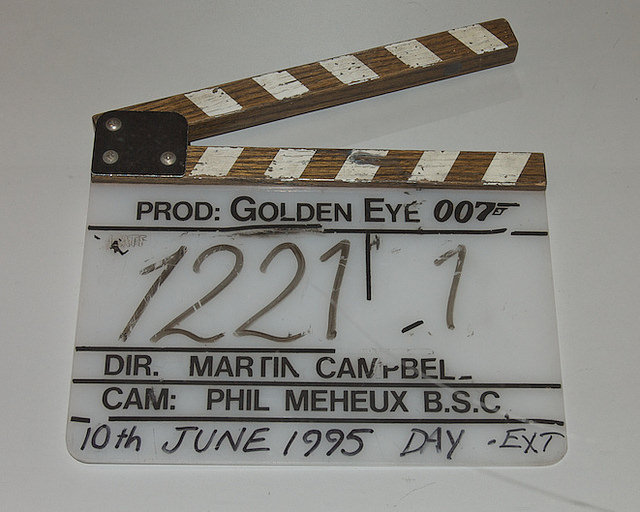 PROD: GOLDEN EYE 007
1221 1
DIR. MARTIN CAMPBELL
CAM: PHIL MEHEUX B.S.C.
10th JUNE 1995 DAY -EXT